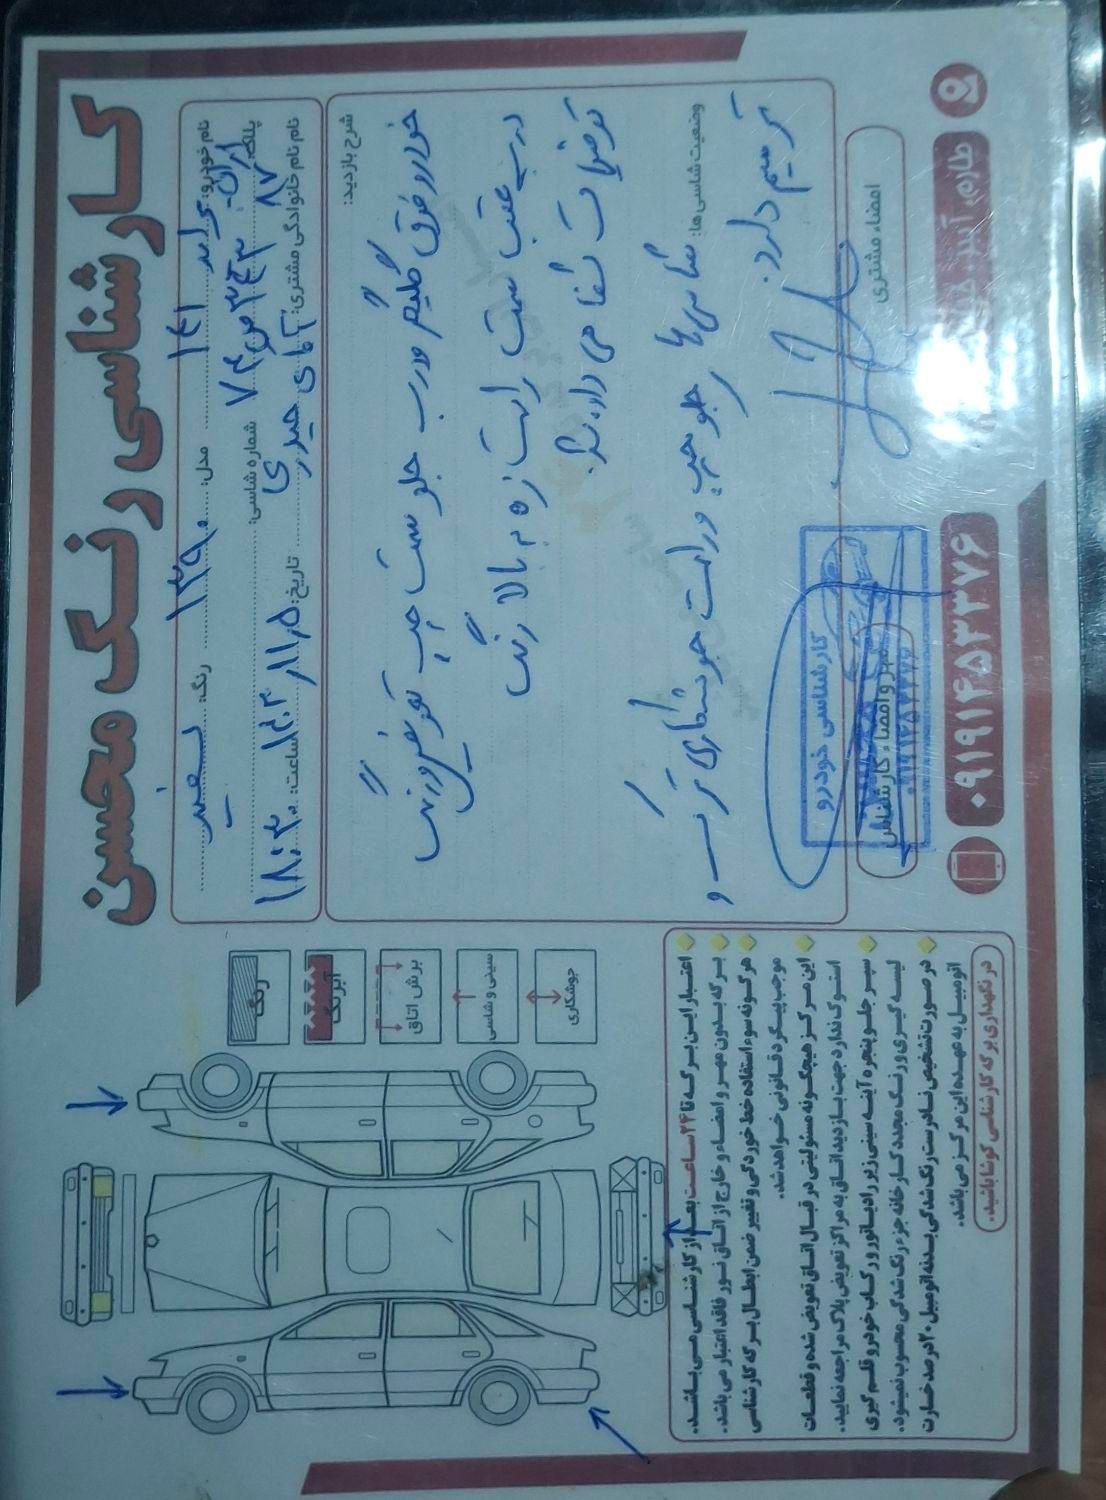 کارشناسی رنگ محسن
نام خودرو: پراید ۱۴۱ مدل: ۱۳۹۰ رنگ: سفید
پلاک: ایران ۸۷ شماره شاسی:
نام نام خانوادگی مشتری: آقای حیدری تاریخ: ۱۴۰۳/۱۱/۵ ساعت: ۱۸:۳۰
شرح بازدید:
خودرو فوق گلگیر و درب جلو سمت چپ تعویض و رنگ
درب عقب سمت راست زه به بالا رنگ
توضیحات شفاهی داده شد.
وضعیت شاسی ها: شاسی ها جلو چپ و راست خوردگی و
ترمیم دارد.
امضاء مشتری
مهر و امضاء کارشناس
کارشناسی خودرو
طارم، آببر،
۰۹۱۹۱۴۵۳۳۷۶
رنگ
آبرنگ
برش اتاق
سینی و شاسی
جوشکاری
اعتبار این برگه تا ۲۴ ساعت بعد از کارشناسی می باشد.
برگه بدون مهر و امضاء و خارج از اتاق نور فاقد اعتبار می باشد.
هرگونه سوء استفاده خط خوردگی و تغییر ضمن ابطال برگه کارشناسی
موجب پیگرد قانونی خواهد شد.
این مرکز هیچگونه مسئولیتی در قبال اتاق تعویض شده و قطعات
استوک ندارد جهت بازدید اتاق به مراکز تعویض پلاک مراجعه نمایید.
سپر جلو پنجره آینه سینی زیر رادیاتور و رکاب خودرو قلم گیری
لیسه گیری و رنگ مجدد کارخانه جزء رنگ شدگی محسوب نمیشود.
در صورت تشخیص نادرست رنگ شدگی بدنه اتومبیل ۲۰ درصد خسارت
اتومبیل به عهده این مرکز می باشد.
در نگهداری برگه کارشناسی کوشا باشید.